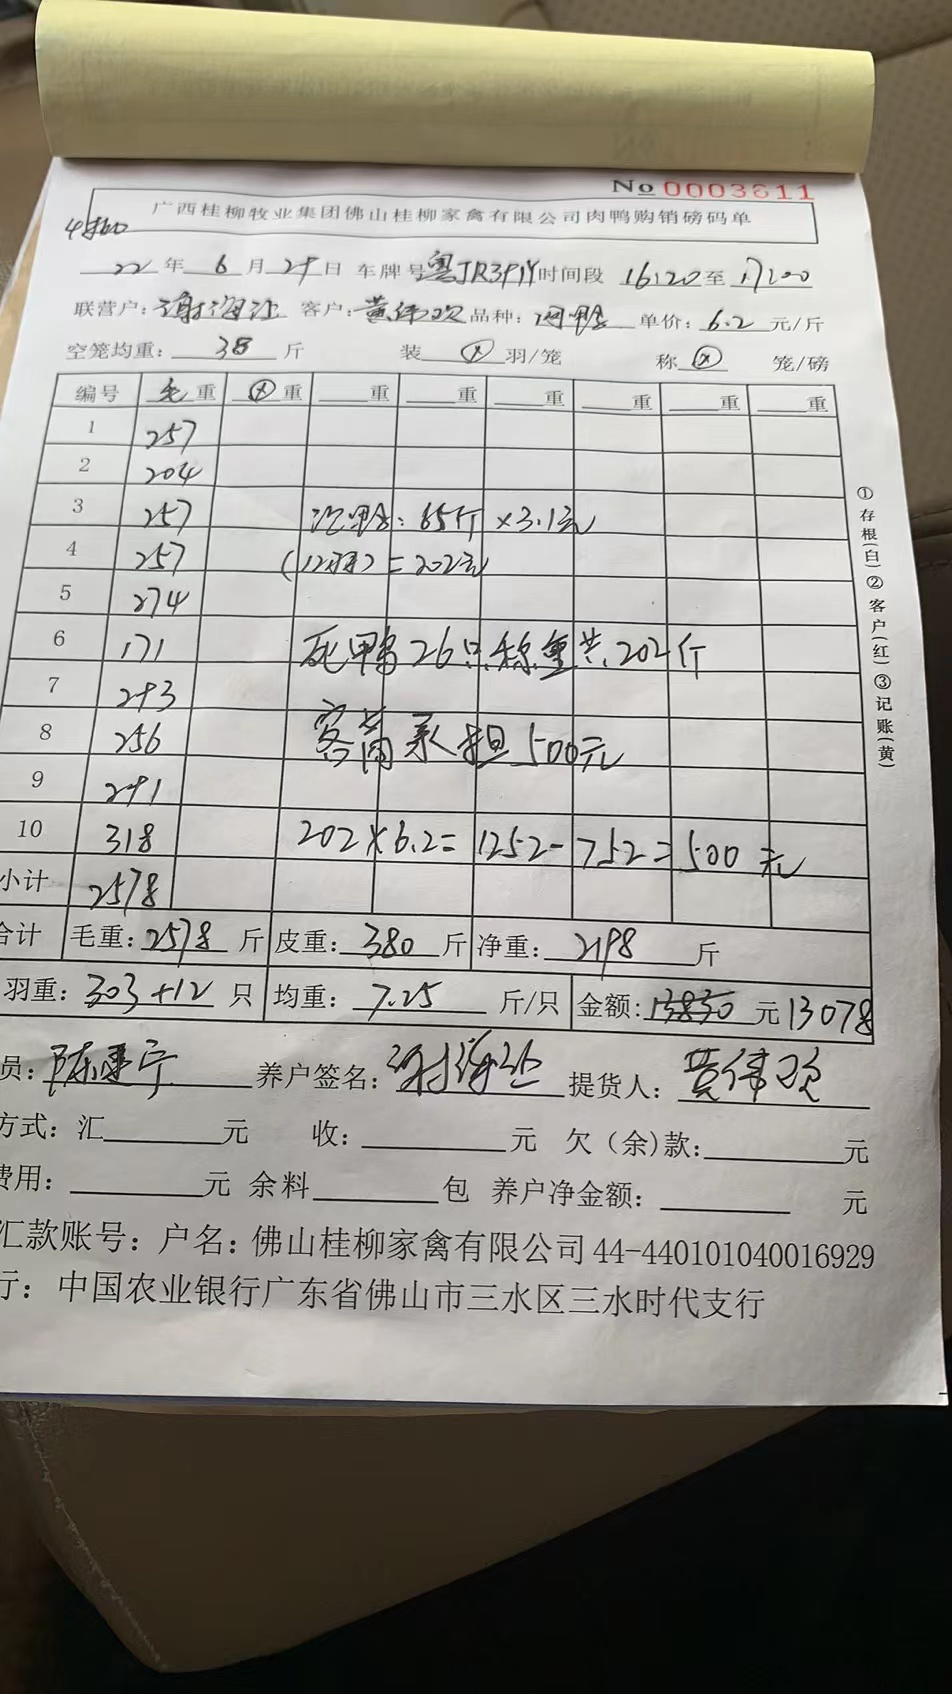 No 0003611
广西桂柳牧业集团佛山桂柳家禽有限公司肉鸭购销磅码单
22年 6月 29日 车牌号 时间段 16:20 至 17:00
联营户: 客户: 黄伟欢 品种: 单价: 6.2 元/斤
空笼均重: 38 斤 装 羽/笼 称 笼/磅
编号 毛重 重 重 重 重 重 重 重
1 257
2 204
3 257 次鸭: 65斤 ×3.1元
4 257 (12羽) = 202元
5 274
6 171 死鸭26只称重共202斤
7 293
8 256 客商承担500元
9 291
10 318 202×6.2=1252-752=500元
小计 2578
合计 毛重: 2578 斤 皮重: 380 斤 净重: 2198 斤
羽重: 303+12 只 均重: 7.25 斤/只 金额: 13830 元 13078
员: 陈建宁 养户签名: 提货人: 黄伟欢
方式: 汇 元 收: 元 欠(余)款: 元
费用: 元 余料 包 养户净金额: 元
汇款账号: 户名: 佛山桂柳家禽有限公司 44-440101040016929
行: 中国农业银行广东省佛山市三水区三水时代支行
①存根(白)②客户(红)③记账(黄)